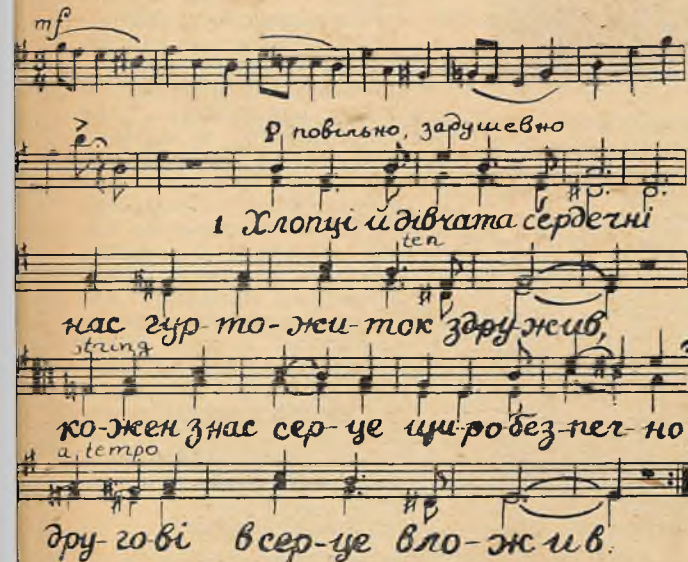 mf
P повільно, задушевно
1 Хлопці й дівчата сердечні
ten
нас гур-то-жи-ток здру-жив,
string
ко-жен з нас сер-це щи-ро без-печ-но
a tempo
дру-го-ві в сер-це вло-жив.